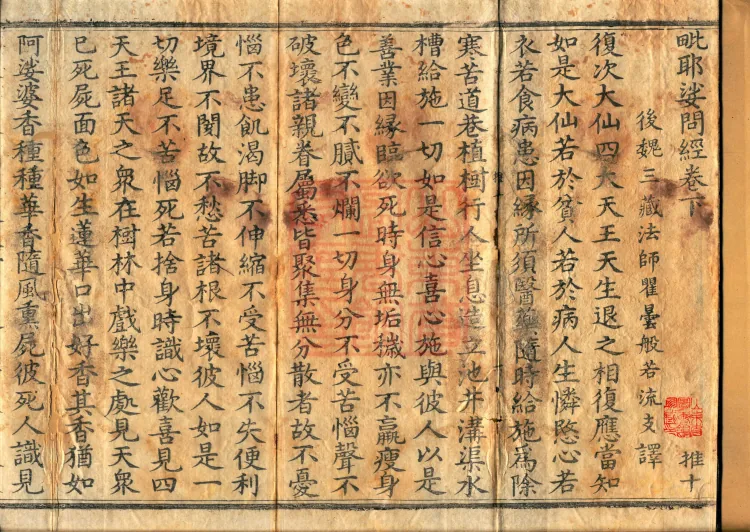 毗耶娑問經卷下
推十
後魏三藏法師瞿曇般若流支譯
復次大仙四大天王天生退之相復應當知
如是大仙若於貧人若於病人生憐愍心若
衣若食病患因緣所須醫藥隨時給施為除
寒苦道巷植樹行人坐息造立池井溝渠水
槽給施一切如是信心喜心施與彼人以是
善業因緣臨欲死時身無垢穢亦不羸瘦身
色不變不膩不爛一切身分不受苦惱聲不
破壞諸親眷屬悉皆聚集無分散者故不憂
惱不患飢渴脚不伸縮不受苦惱不失便利
境界不閡故不愁苦諸根不壞彼人如是一
切樂足不苦惱死若捨身時識心歡喜見四
天王諸天之衆在樹林中戲樂之處見天衆
已死屍面色如生蓮華口出好香其香猶如
阿娑婆香種種華香隨風熏屍彼死人識見